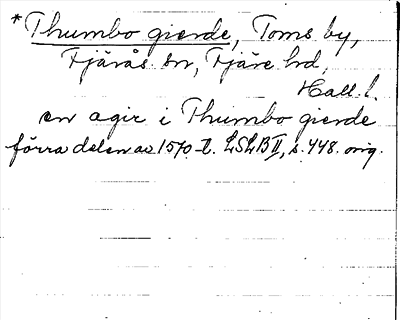 *Thumbo gierde, Toms by,
Fjärås sn, Fjäre hd,
Hall. l.
en agir i Thumbo gierde
förra delen av 1570-t. LSLB II, s. 448. orig.